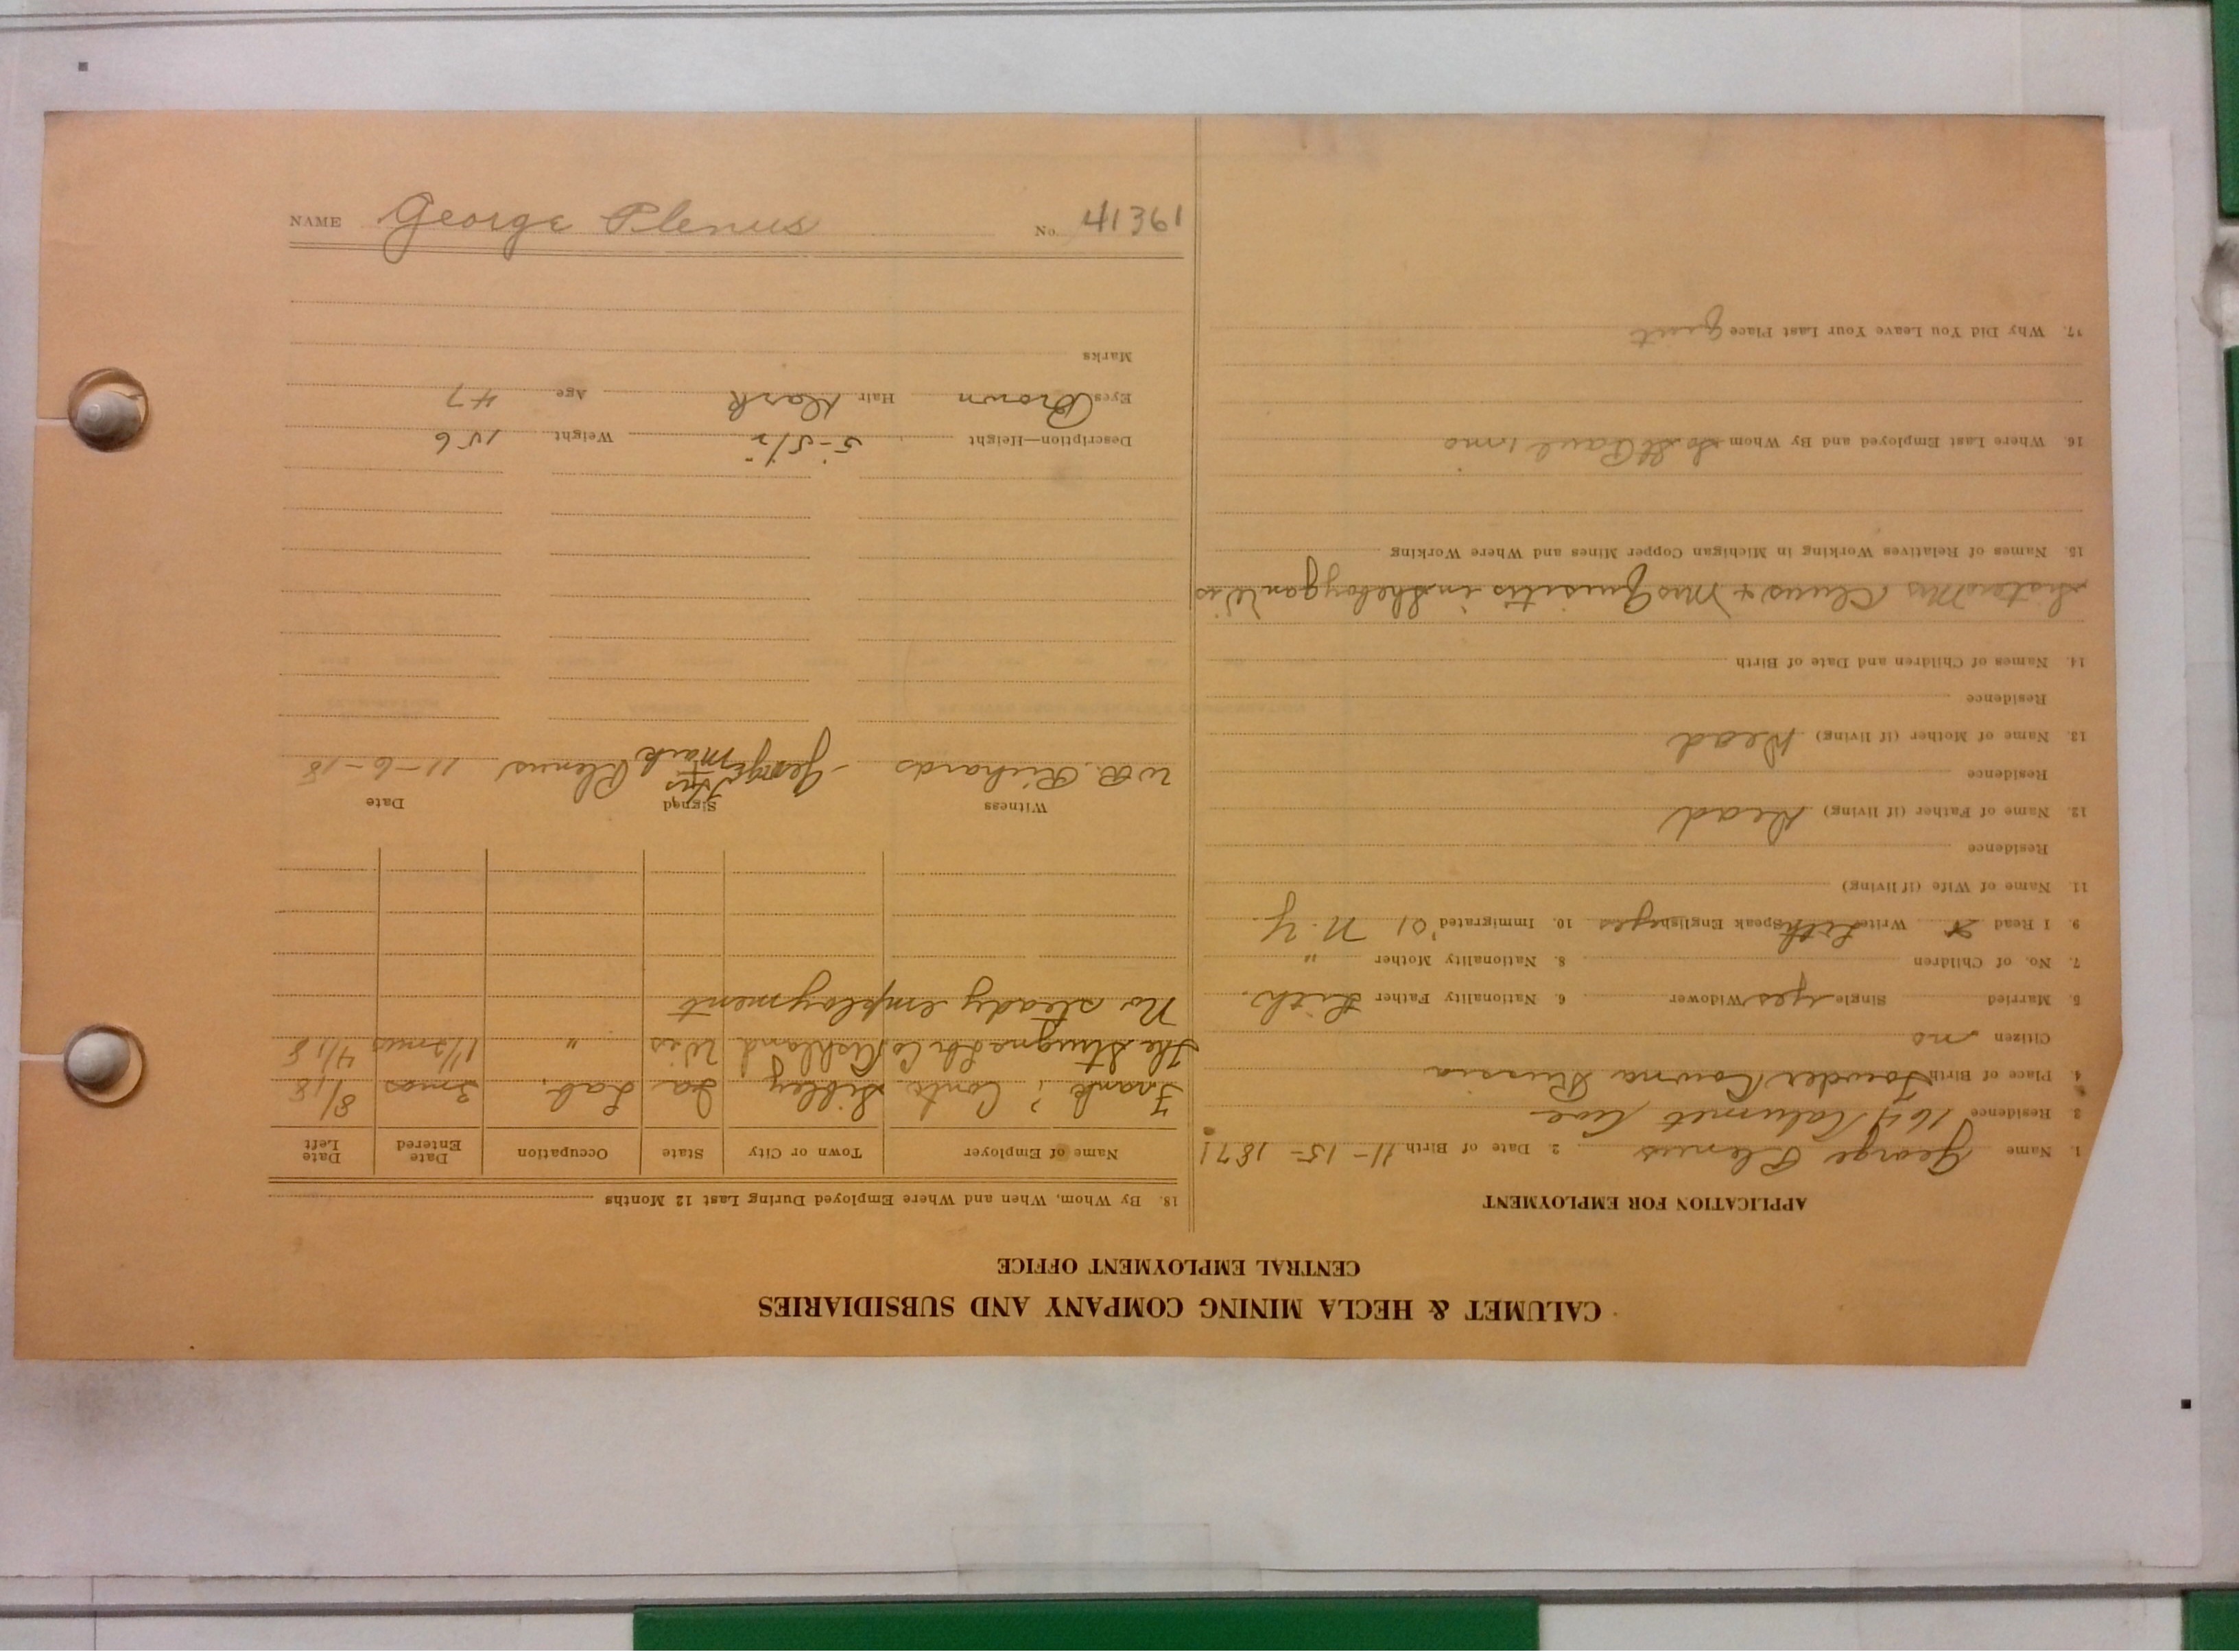 NAME George Plenus No. 41361
CALUMET & HECLA MINING COMPANY AND SUBSIDIARIES
CENTRAL EMPLOYMENT OFFICE
APPLICATION FOR EMPLOYMENT
1. Name George Plenus 2. Date of Birth 11-15-1871
3 Residence 164 Calumet Ave
4. Place of Birth Kowna Russia
Citizen no
5. Married Single yes Widower 6. Nationality Father Lith.
7. No. of Children 8. Nationality Mother "
9. I Read x Write Lith Speak English yes 10. Immigrated '01 N.Y.
11. Name of Wife (if living)
Residence
12. Name of Father (if living) Dead
Residence
13. Name of Mother (if living) Dead
Residence
14. Names of Children and Date of Birth
Sister Mrs + Mrs in Sheboygan Wis
15. Names of Relatives Working in Michigan Copper Mines and Where Working
16. Where Last Employed and By Whom So. St Paul
17. Why Did You Leave Your Last Place quit
18. By Whom, When and Where Employed During Last 12 Months
Name of Employer Town or City State Occupation Date Entered Date Left
Frank ? Contr. Sibley Ia Lab. 3 mos 8/18
The Lbr Co Ashland Wis " 1 1/2 mos 4/18
No steady employment
Witness Signed Date
W.R. Richards George His + mark Plenus 11-6-18
Description—Height 5-5 1/2 Weight 156
Eyes Brown Hair Dark Age 47
Marks